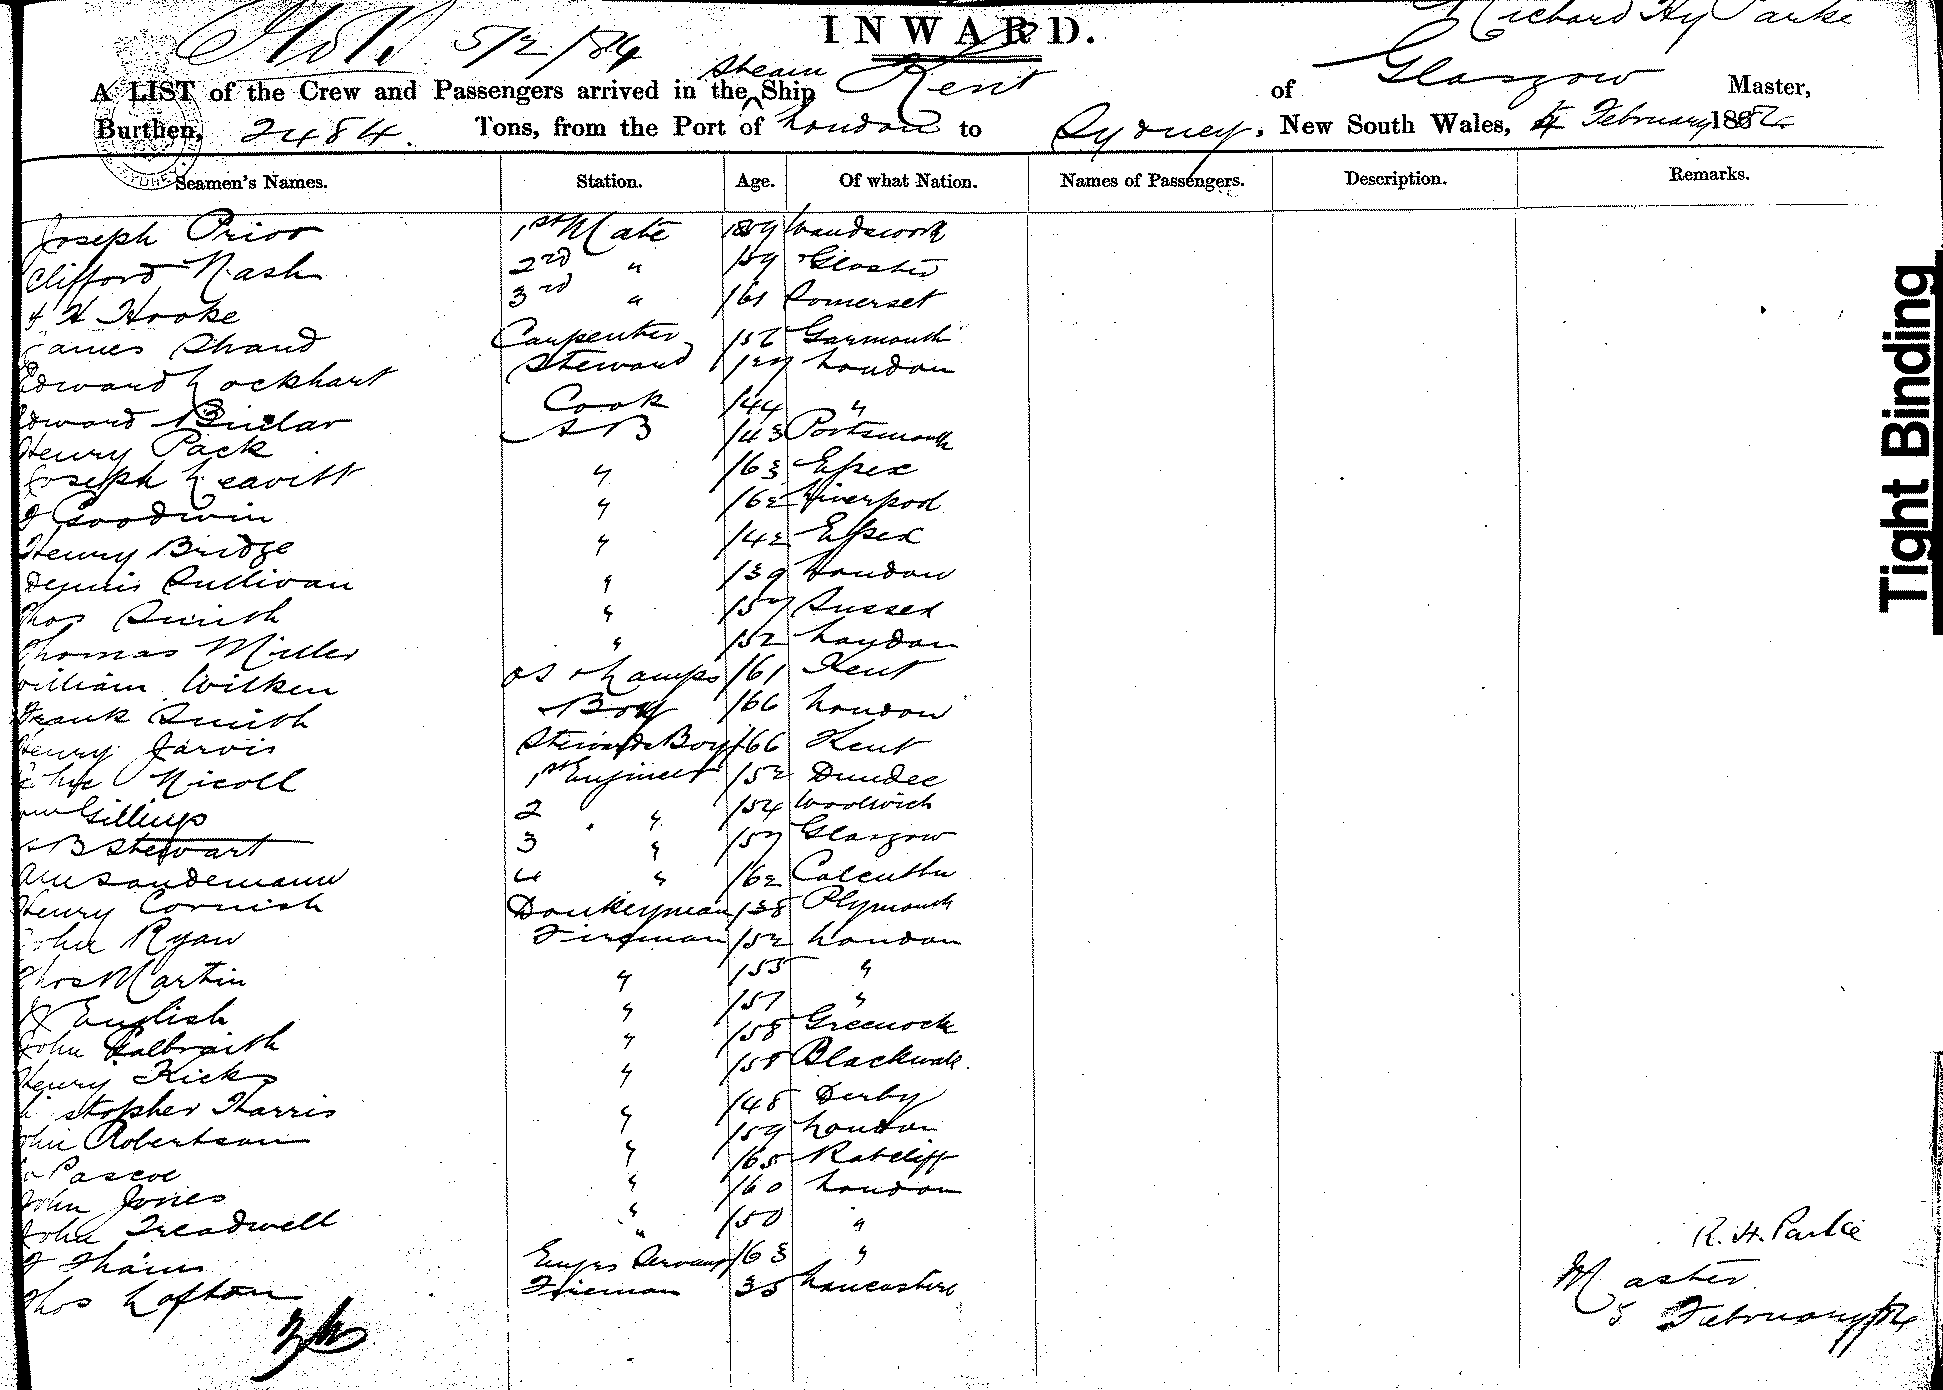 INWARD.
5/2/84
Richard Hy Parke
A LIST of the Crew and Passengers arrived in the Steam Ship Kent of Glasgow Master,
Burthen, 2484. Tons, from the Port of London to Sydney. New South Wales, 4 February 188
Seamen's Names. Station. Age. Of what Nation. Names of Passengers. Description. Remarks.
Joseph Prior 1st Mate 1859 Wandsworth
Clifford Nash 2nd " /59 Gloster
H Hooke 3rd " /61 Somerset
James Shand Carpenter /56 Garmouth
Edward Lockhart Steward London
Edward Cook /44 "
Henry Pack AB /43 Portsmouth
Joseph Leavitt " /63 Essex
Goodwin " /62 Liverpool
Henry Bridge " /42 Essex
Dennis Sullivan " /39 London
Thos Smith " /57 Sussex
Thomas Miller " /52 London
William Wilken OS & Lamps /61 Kent
Frank Smith Boy /66 London
Henry Jarvis Stewards Boy /66 Kent
John Nicoll 1st Engineer /52 Dundee
Gillings 2 " /54 Woolwich
B Stewart 3 " /59 Glasgow
Wm Sandemann 4 " /62 Calcutta
Henry Cornish Donkeyman /38 Plymouth
John Ryan Fireman /52 London
Thos Martin " /55 "
English " /57 "
John Galbraith " /58 Greenock
Henry Hicks " /58 Blackwall.
stopher Harris " /48 Derby
John Robertson " /59 London
Pascoe " /65 Ratcliff
John Jones " /60 London
John Treadwell " /50 "
Engrs Servant /63 "
Thos Lofton Fireman 35 Lancashire
R. H. Parke
Master
5 February/84
Tight Binding